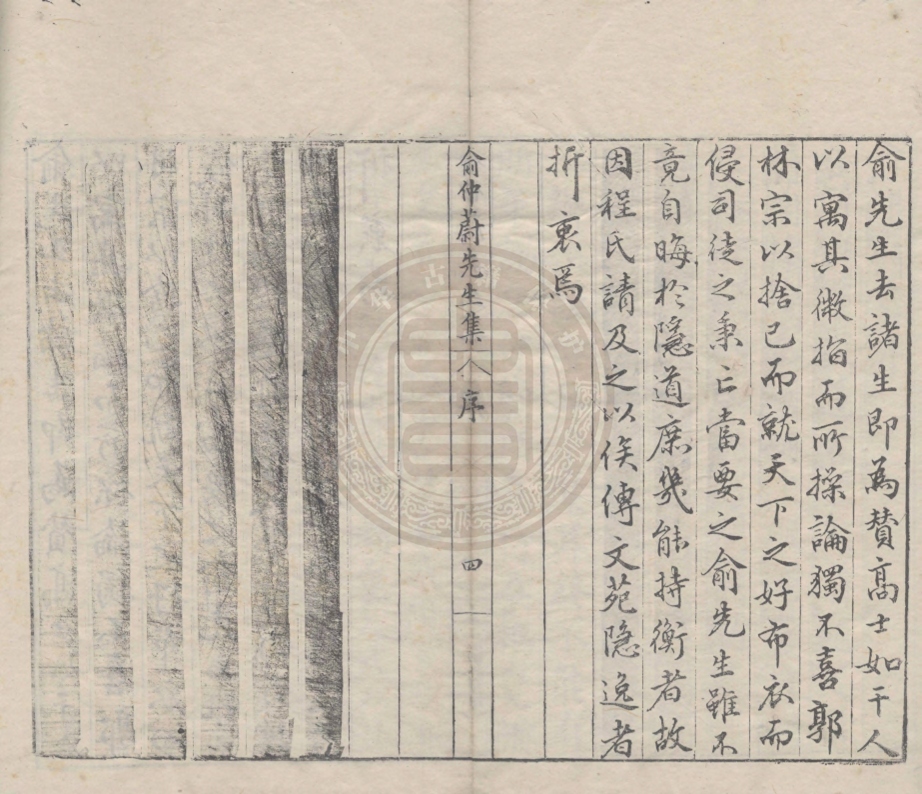 俞先生去諸生即為贊高士如干人
以寓其微指而所操論獨不喜郭
林宗以捨己而就天下之好布衣而
侵司徒之秉亡當要之俞先生雖不
竟自晦於隱道庶幾能持衡者故
因程氏請及之以俟傳文苑隱逸者
折衷焉
俞仲蔚先生集 序 四